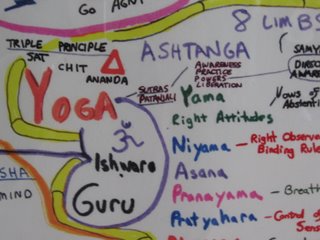 GO AGNI
8 LIMBS
TRIPLE PRINCIPLE
SAT
CHIT
ANANDA
ASHTANGA
SAMY
DIREC
AWARE
AWARENESS
PRACTICE
POWERS
LIBERATION
SUTRAS
PATANJALI
YOGA
Yama
Vows of
Abstenti
Right Attitudes
ॐ
Niyama – Right Observa
Binding Rule
Ishwara
Asana
SHA
MIND
Guru
Pranayama – Breath
Pratyahara – Control of
Sens